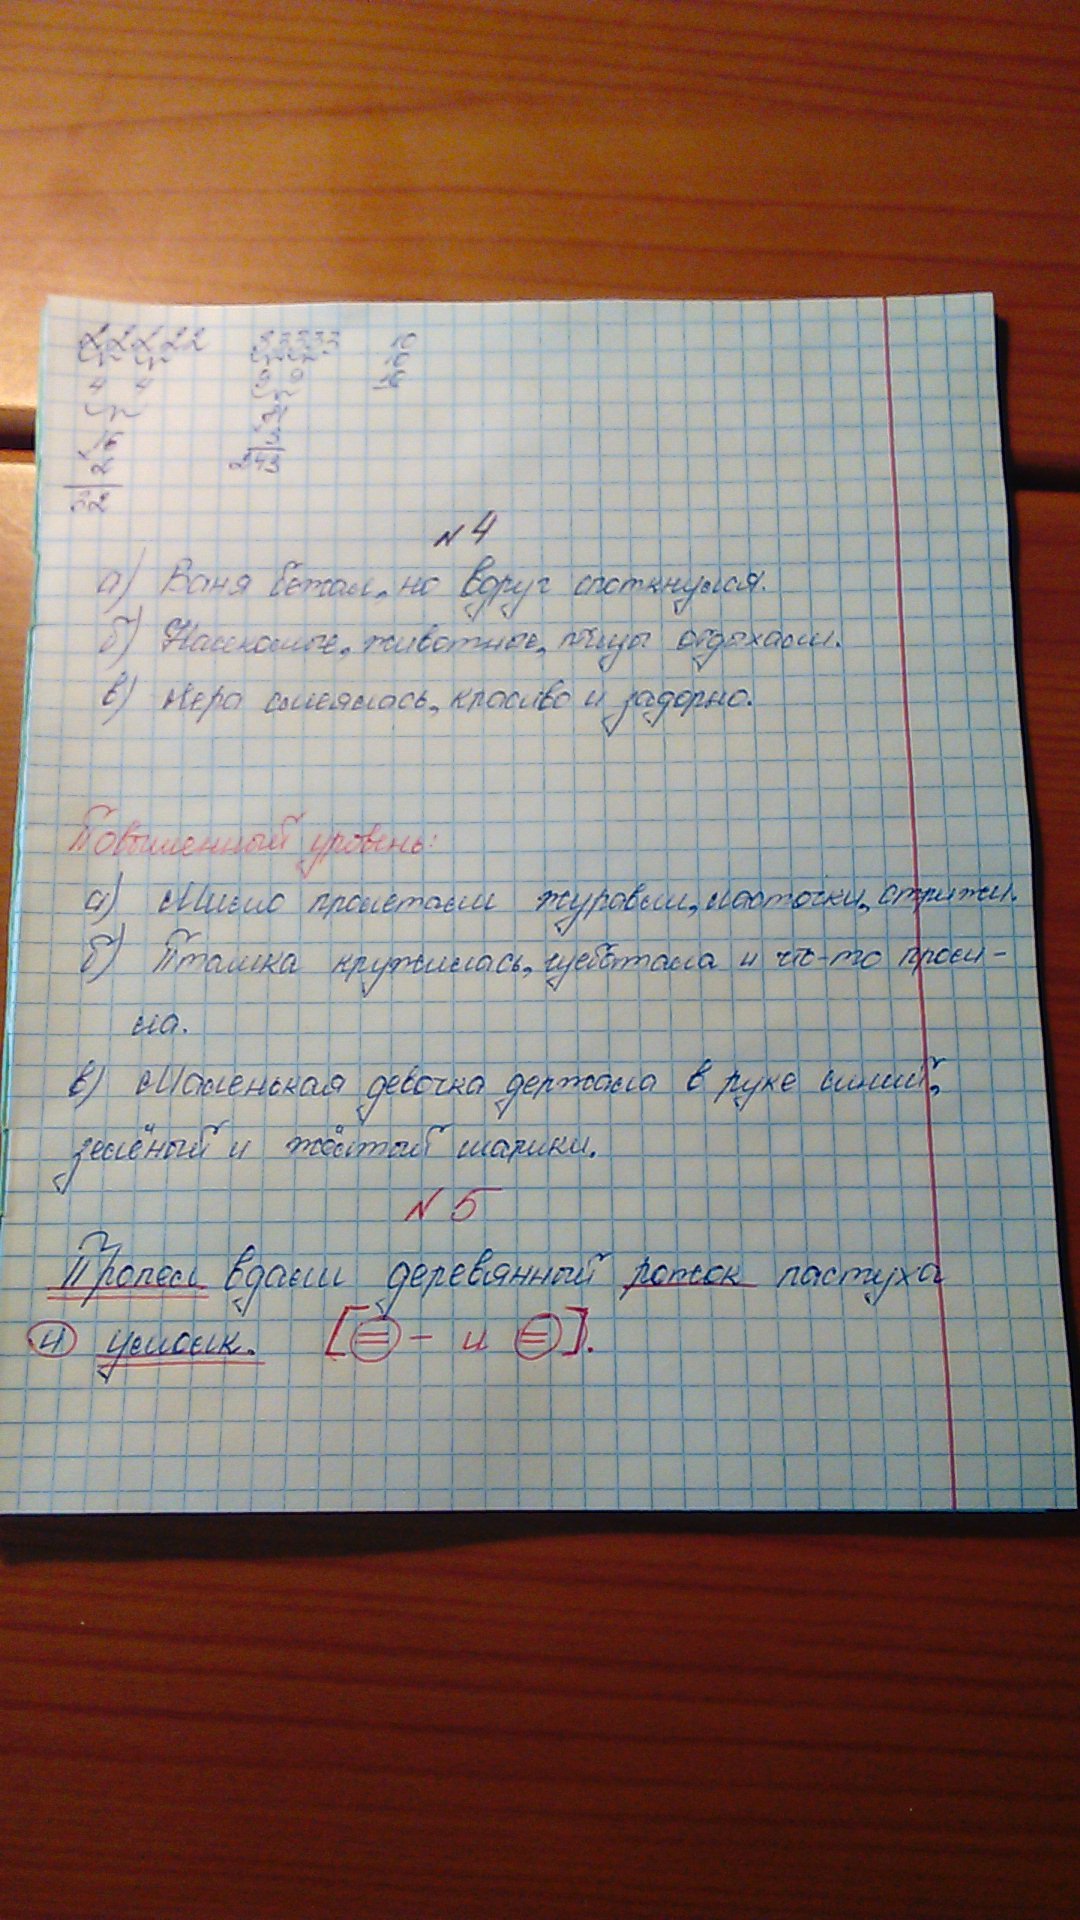 2 2 2 2 2
3 3 3 3 3
10
4 4
2
32
243
N 4
а) Ваня бежал, но вдруг споткнулся.
б) Насекомые, животные, птицы отдыхали.
в) Лера смеялась, красиво и задорно.
Повышенный уровень:
а) Мимо пролетали журавли, ласточки, стрижи.
б) Пташка кружилась, щебетала и что-то проси-
ла.
в) Маленькая девочка держала в руке синий,
зелёный и жёлтый шарики.
N 5
Пропел вдали деревянный рожок пастуха
и умолк. [= – и =].